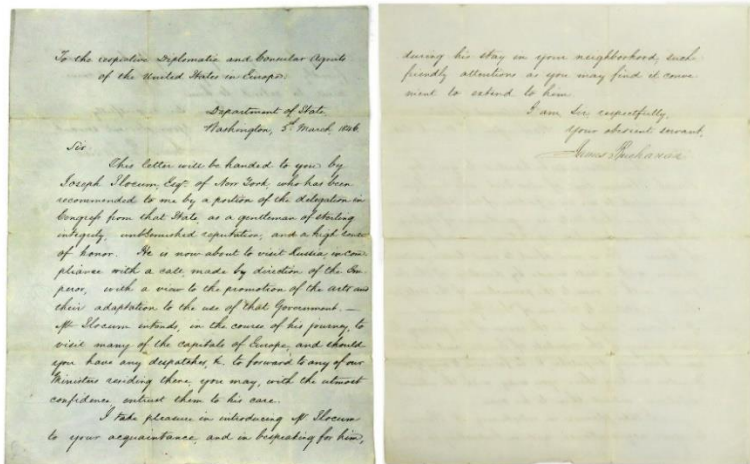 To the respective Diplomatic and Consular Agents
of the United States in Europe.
Department of State,
Washington, 5th March, 1846.
Sir
This letter will be handed to you by
Joseph Slocum, Esqr. of New York, who has been
recommended to me by a portion of the delegation in
Congress from that State, as a gentleman of sterling
integrity, unblemished reputation, and a high sense
of honor. He is now about to visit Russia, in com-
pliance with a call, made by direction of the Em-
peror, with a view to the promotion of the arts and
their adaptation to the use of that Government. —
Mr Slocum intends, in the course of his journey, to
visit many of the capitals of Europe, and should
you have any despatches, &c. to forward to any of our
Ministers residing there, you may, with the utmost
confidence, entrust them to his care.
I take pleasure in introducing Mr Slocum
to your acquaintance, and in bespeaking for him,
during his stay in your neighborhood, such
friendly attentions as you may find it conve
nient to extend to him.
I am Sir, respectfully,
Your obedient servant,
James Buchanan